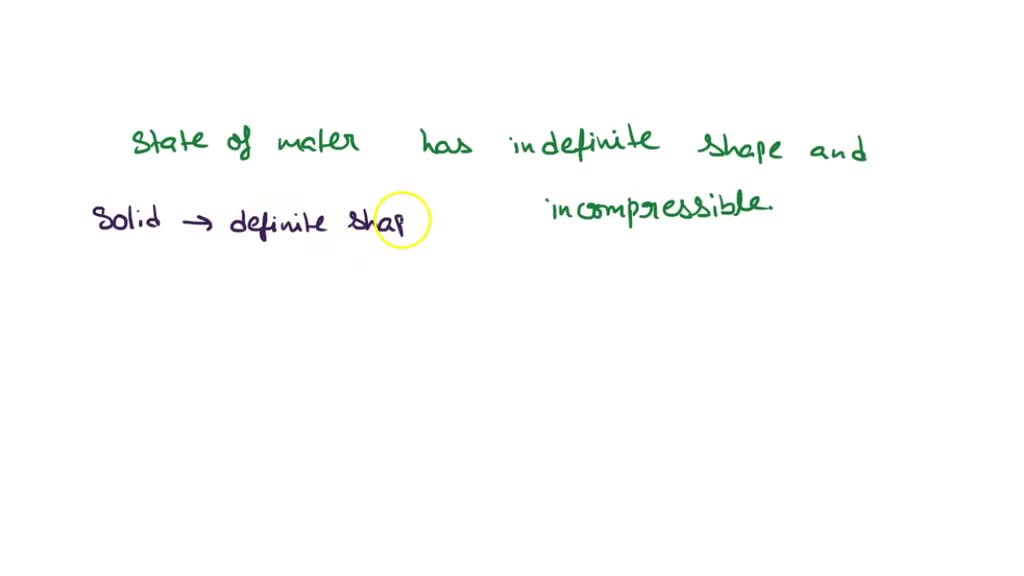 State of mater has indefinite shape and
incompressible.
Solid → definite shap